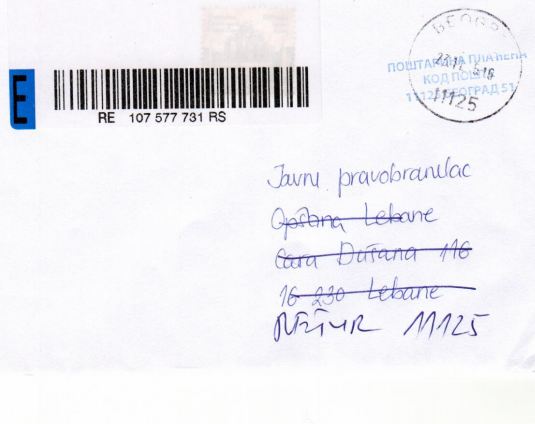 E
RE 107 577 731 RS
БЕОГР
ПОШТАРИНА ПЛАЋЕНА
КОД ПОШТЕ
11125 БЕОГРАД 51
11125
Javni pravobranilac
Opština Lebane
Cara Dušana 116
16 230 Lebane
RETUR 11125